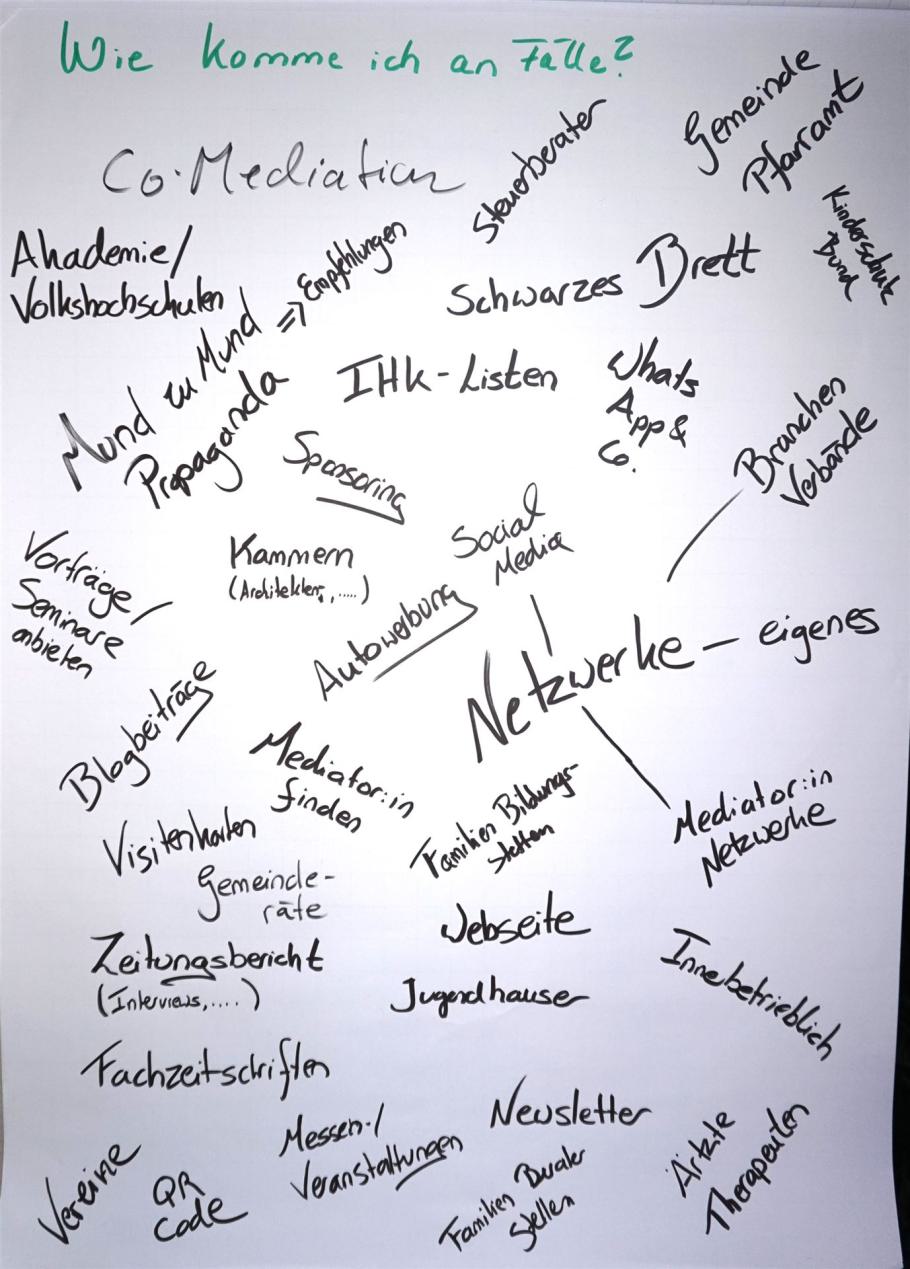 Wie komme ich an Fälle?
Co-Mediation
Steuerberater
Gemeinde
Pfarramt
Kinderschutz
Bund
Akademie/
Volkshochschulen
Mund zu Mund
Propaganda
=> Empfehlungen
Schwarzes Brett
IHK-Listen
Whats
App &
Co.
Branchen
Verbände
Sponsoring
Social
Media
Kammern
(Architekten, .....)
Vorträge/
Seminare
anbieten
Autowerbung
Netzwerke – eigenes
Blogbeiträge
Mediator:in
finden
Mediator:in
Netzwerke
Familien Bildungs-
stetten
Visitenkarten
Gemeinde-
räte
Webseite
Zeitungsbericht
(Interviews, ....)
Jugendhauser
Innebetrieblich
Fachzeitschriften
Newsletter
Messen /
Veranstaltungen
Ärtzte
Therapeuten
Vereine
QR
Code
Familien
Stellen